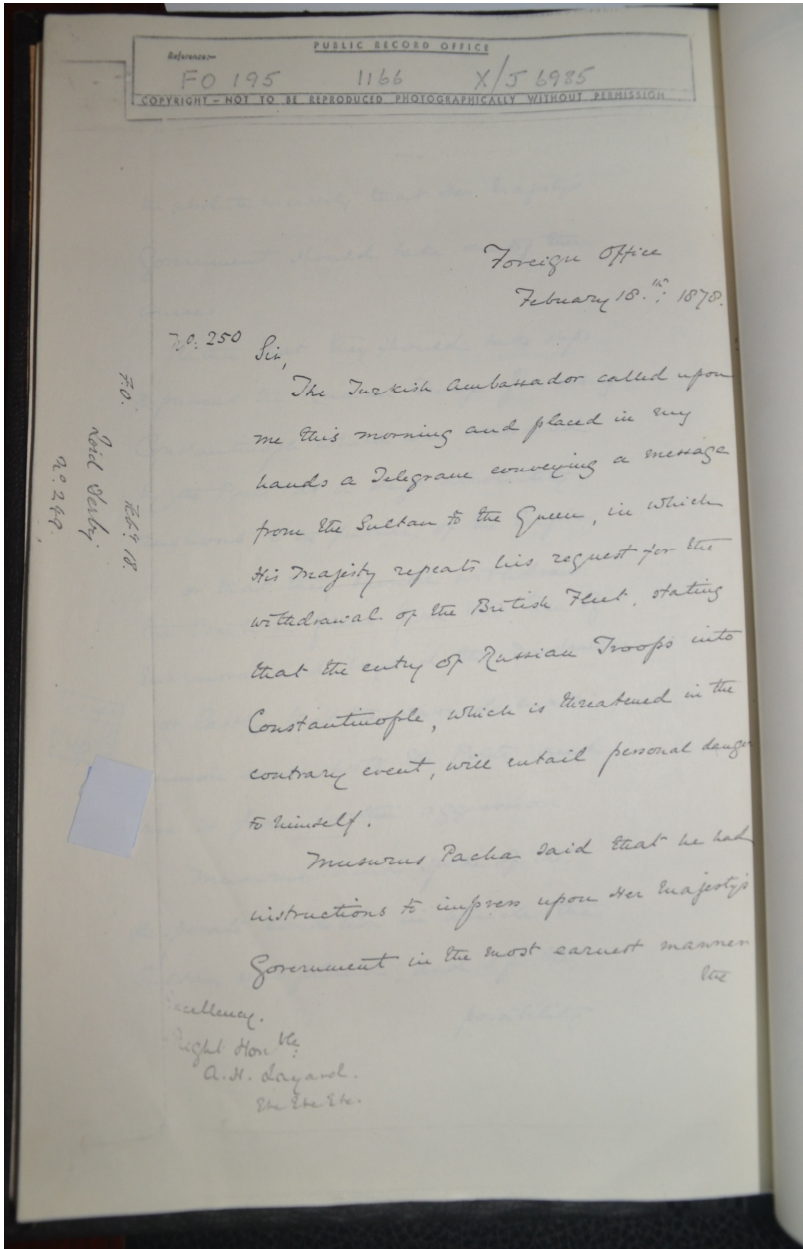 PUBLIC RECORD OFFICE
Reference:-
FO 195 1166 X/J 6985
COPYRIGHT - NOT TO BE REPRODUCED PHOTOGRAPHICALLY WITHOUT PERMISSION
Foreign Office
February 18.th: 1878.
No. 250
Sir,
The Turkish Ambassador called upon
me this morning and placed in my
hands a Telegram conveying a message
from the Sultan to the Queen, in which
His Majesty repeats his request for the
withdrawal of the British Fleet, stating
that the entry of Russian Troops into
Constantinople, which is threatened in the
contrary event, will entail personal dange
to himself.
Musurus Pacha said that he had
instructions to impress upon Her Majesty's
Government in the most earnest manner
the
xcellency.
Right Honble:
A. H. Layard.
Etc Etc Etc.
F.O. Feby 18.
Lord Derby
No. 249.